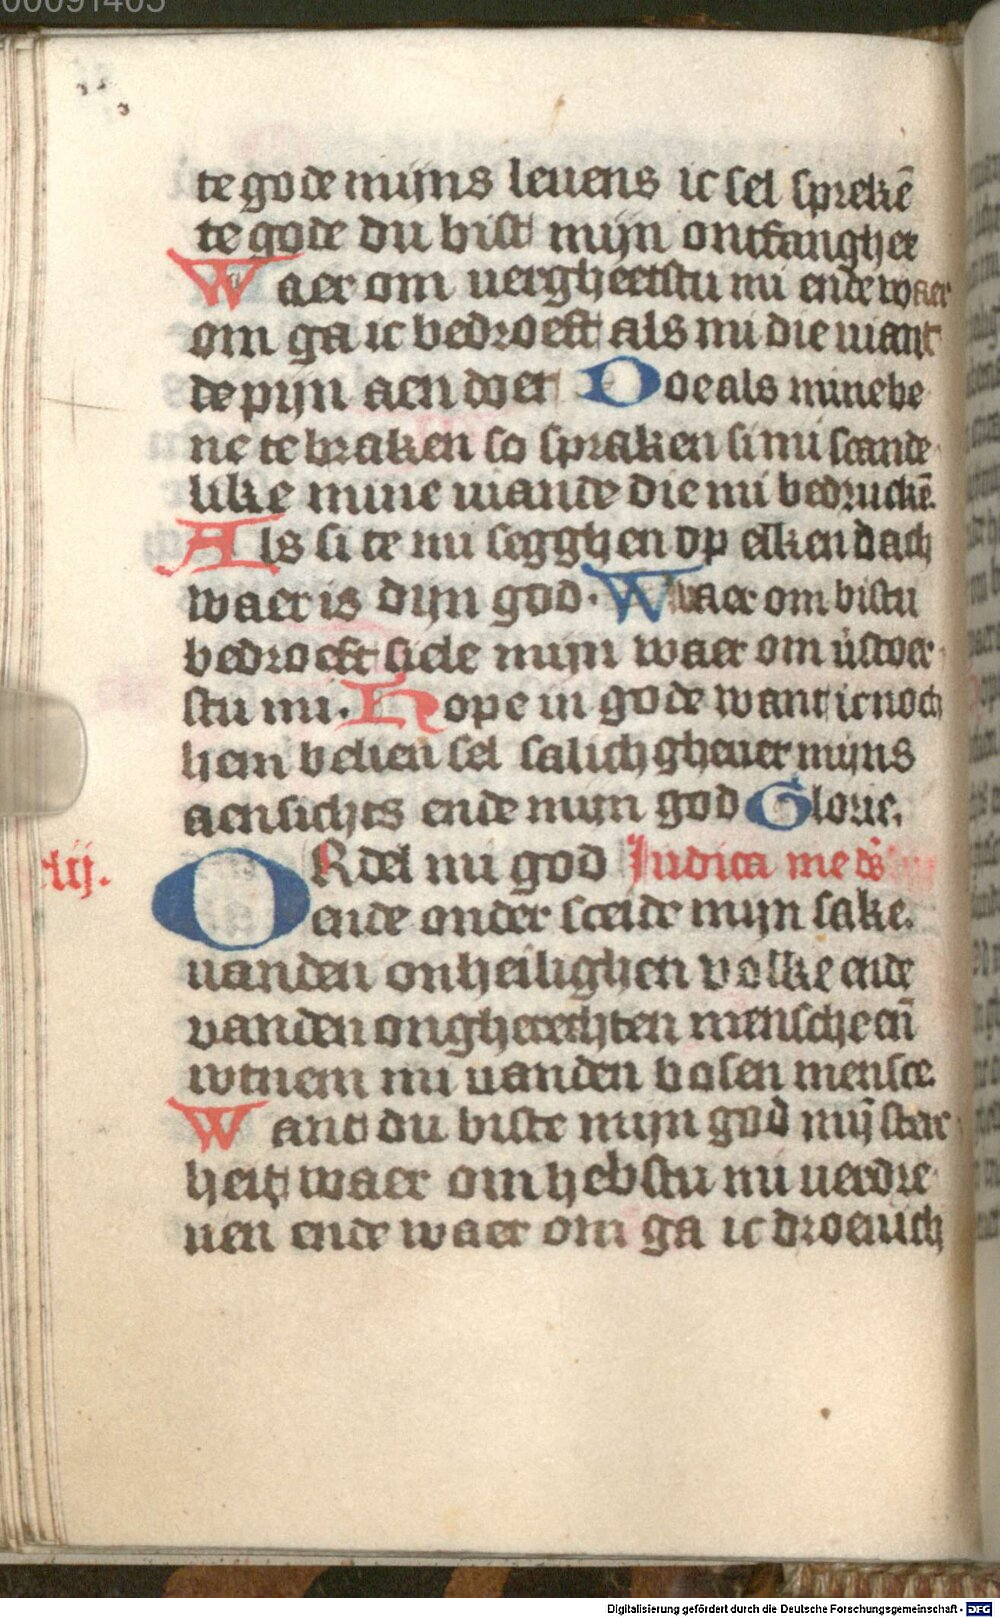 00091405
te gode mijns leuens ic sel sprekē
te gode du bist mijn ontfangher
Waer om uergheetstu mi ende waer
om ga ic bedroeft als mi die uiant
de pijn aen doet Doe als mine be
ne te braken so spraken si mi scande
like mine uiande die mi bedruckē.
Als si te mi segghen op elken dach
waer is dijn god. Waer om bistu
bedroeft siele mijn waer om
stu mi. Hope in gode want ic noch
hem belien sel salich gheuer mijns
aensichts ende mijn god Glorie.
xlij.
ORdel mi god Iudica me ds
ende onder sceide mijn sake.
uanden onheilighen volke ende
vanden ongherechten mensche eñ
wtnem mi uanden bosen mensce.
Want du biste mijn god mij star
heit waer om hebstu mi uerdre
uen ende waer om ga ic droeuich
Digitalisierung gefördert durch die Deutsche Forschungsgemeinschaft - DFG